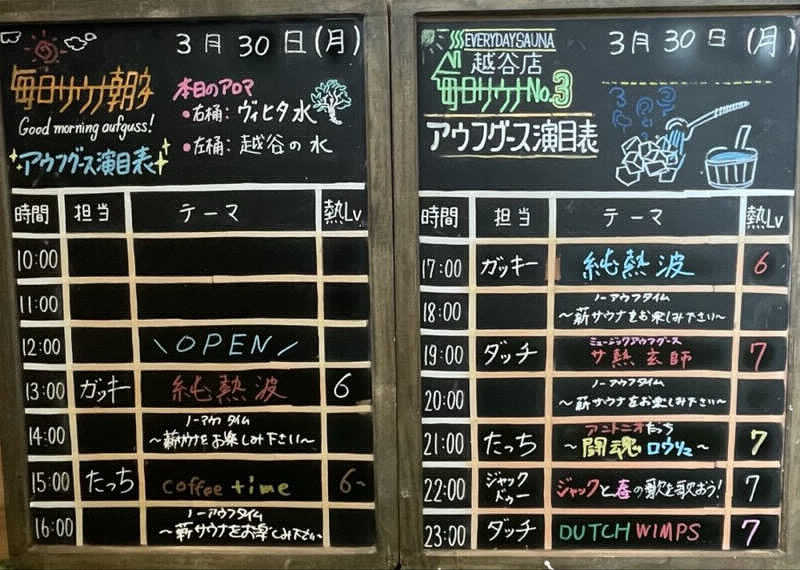 3月30日(月)
毎日サウナ朝
Good morning aufguss!
アウフグース演目表
本日のアロマ
•右桶: ヴィヒタ水
•左桶: 越谷の水
時間 担当 テーマ 熱Lv
10:00
11:00
12:00 \OPEN/
13:00 ガッキー 純熱波 6
14:00 ノーアウフタイム
〜薪サウナをお楽しみ下さい〜
15:00 たっち coffee time 6
16:00 ノーアウフタイム
〜薪サウナをお楽しみ下さい
3月30日(月)
EVERYDAYSAUNA
越谷店
毎日サウナNo.3
アウフグース演目表
時間 担当 テーマ 熱Lv
17:00 ガッキー 純熱波 6
18:00 ノーアウフタイム
〜薪サウナをお楽しみ下さい〜
19:00 ダッチ ミュージックアウフグース
サ熱玄師 7
20:00 ノーアウフタイム
〜薪サウナをお楽しみ下さい〜
21:00 たっち アントニオたっち
〜闘魂ロウリュ〜 7
22:00 ジャックバゥー ジャックと春の歌を歌おう! 7
23:00 ダッチ DUTCH WIMPS 7